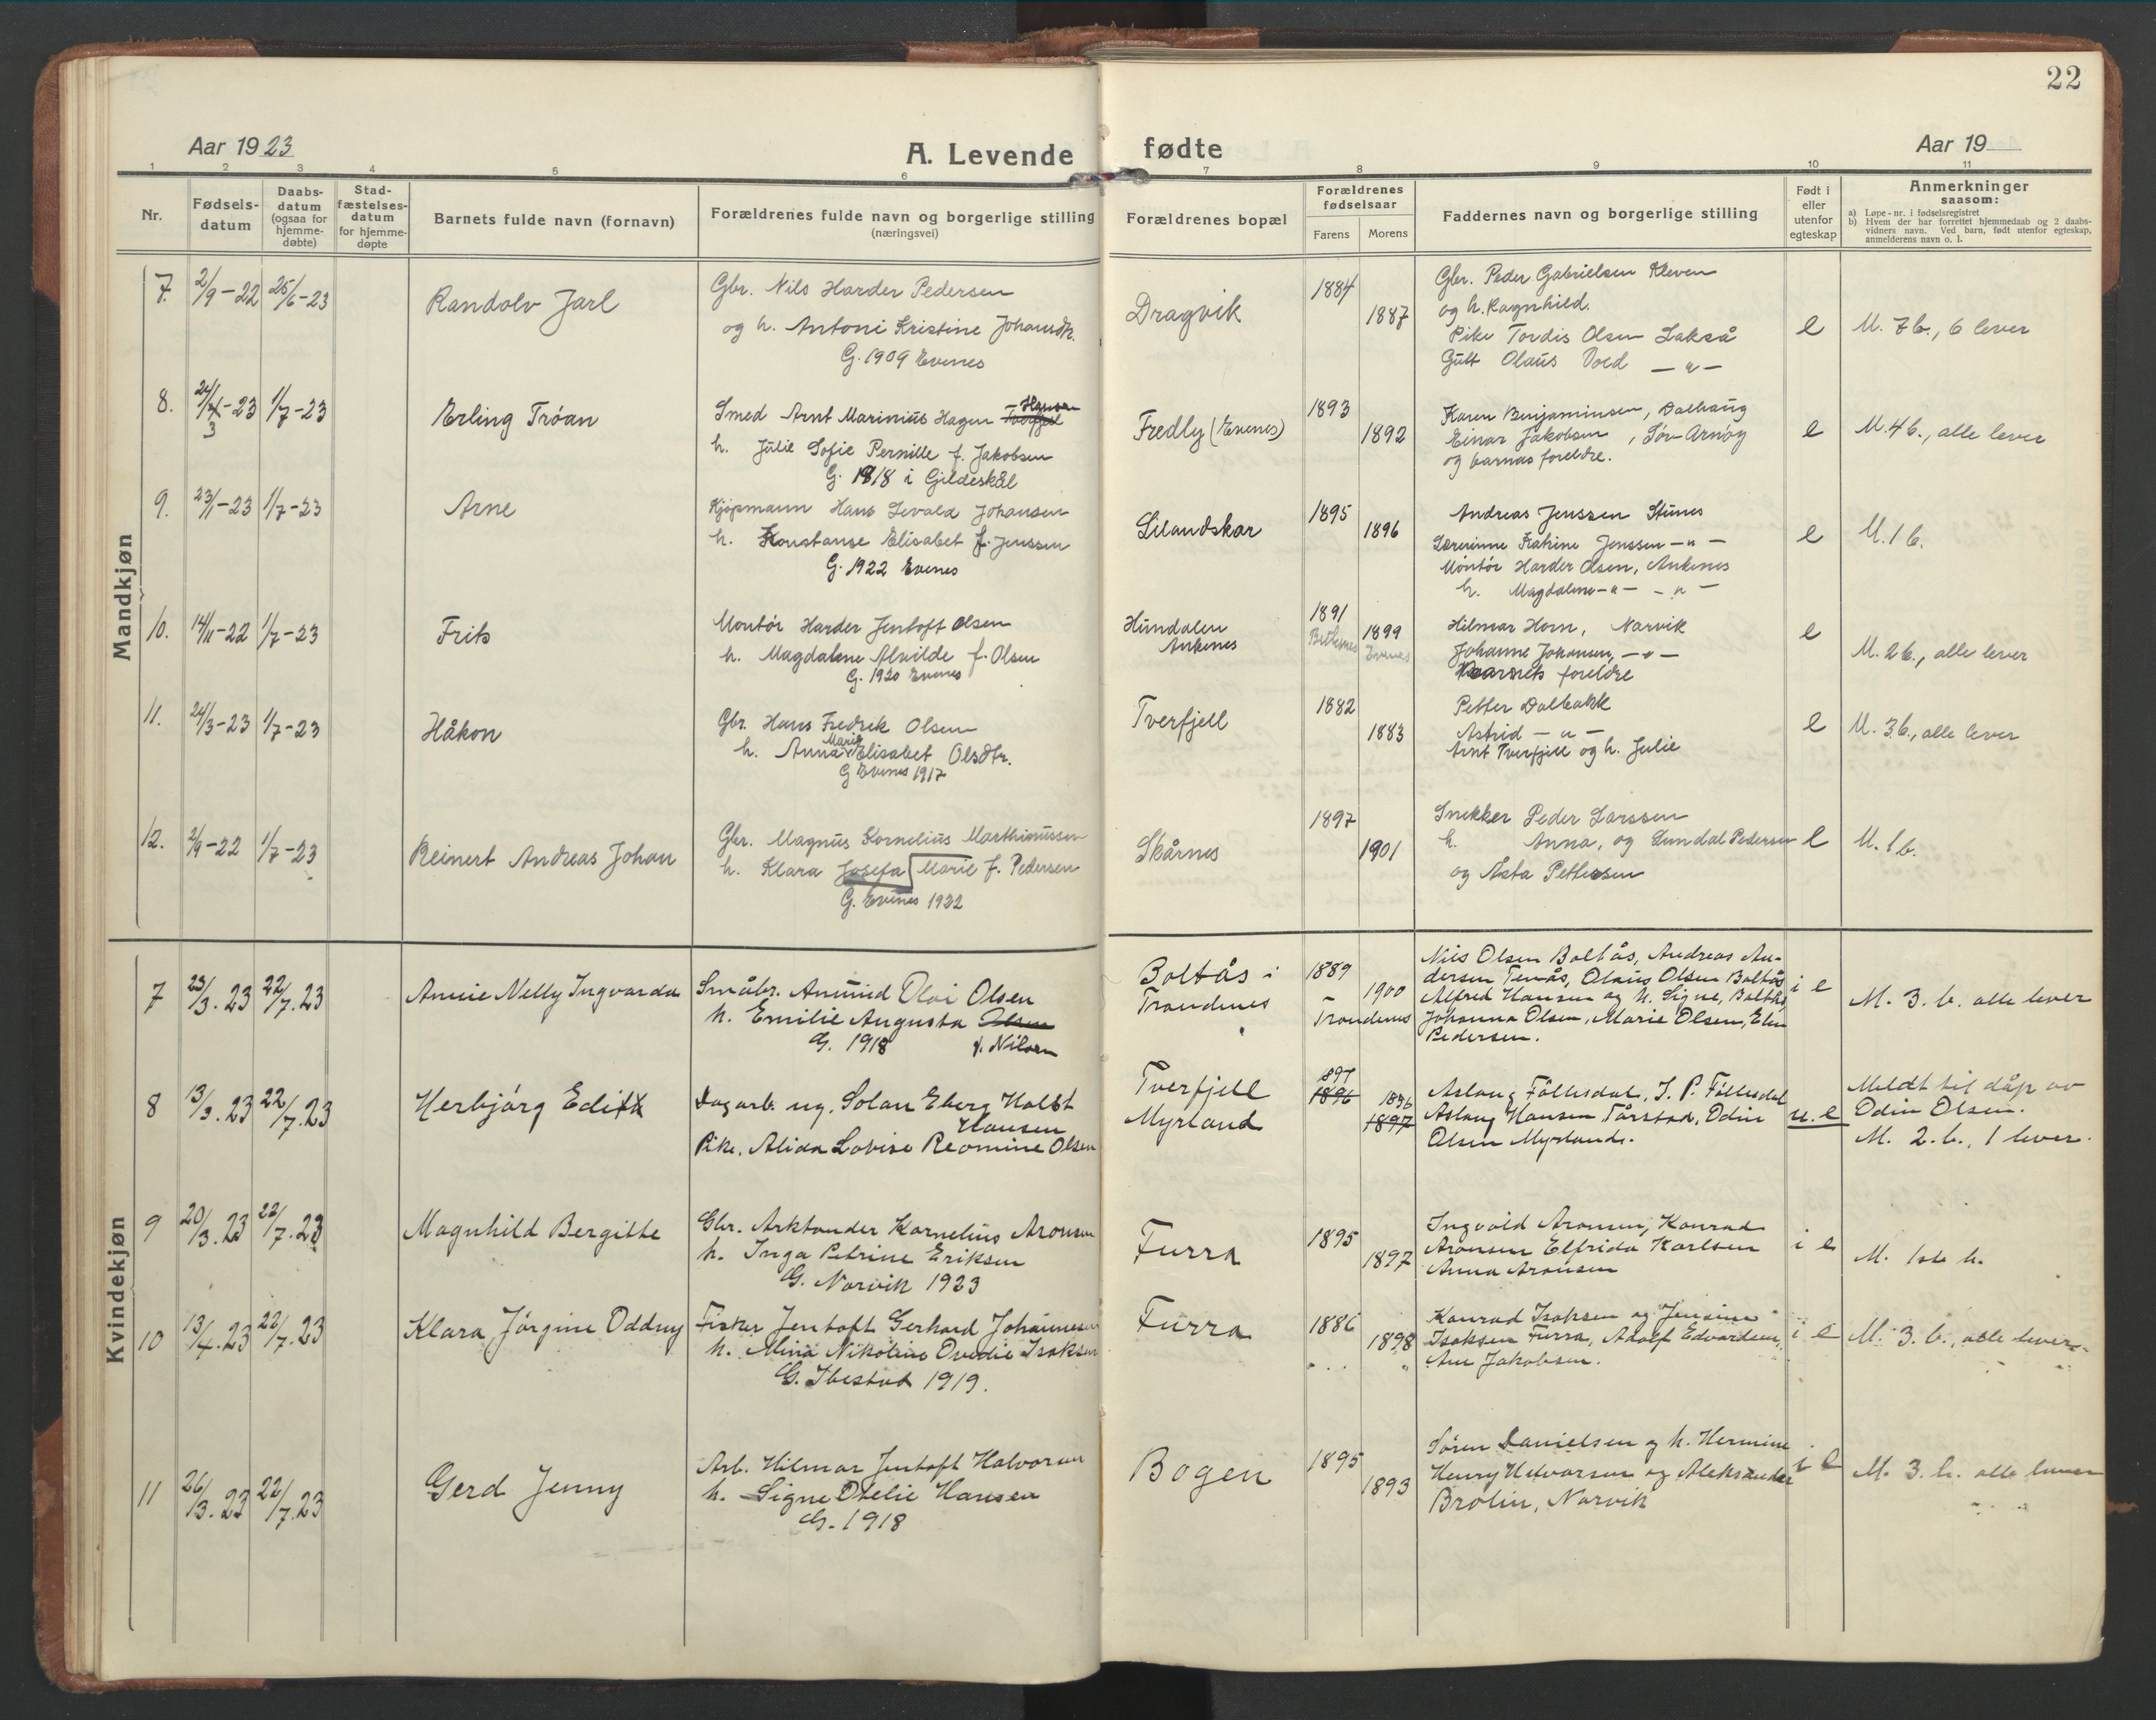 22
Aar 1923
A. Levende fødte
Aar 19
1 2 3 4 5 6 7 8 9 10 11
Nr.
Fødsels-datum
Daabs-datum (ogsaa for hjemme-døbte)
Stad-fæstelses-datum for hjemme-døpte
Barnets fulde navn (fornavn)
Forældrenes fulde navn og borgerlige stilling
(næringsvei)
Forældrenes bopæl
Forældrenes fødselsaar
Farens Morens
Faddernes navn og borgerlige stilling
Født i eller utenfor egteskap
Anmerkninger
saasom:
a) Løpe-nr. i fødselsregistret
b) Hvem der har forrettet hjemmedaab og 2 daabs-
vidners navn. Ved barn, født utenfor egteskap,
anmelderens navn o. l.
Mandkjøn
7. 2/9-22 25/6-23 Randolv Jarl
Gbr. Nils Harder Pedersen
og h. Antoni Kristine Johansdtr.
G. 1909 Evenes
Dragvik
1884
1887
Gbr. Peder Gabrielsen Kleven
og h. Ragnhild.
Pike Tordis Olsen Lakså
Gutt Olaus Voed — " —
e
M. 7 b., 6 lever
8. 24/3-23 1/7-23 Erling Tróan
Smed Arnt Marinius Hagen Hansen
h. Julie Sofie Pernille f. Jakobsen
G. 1918 i Gildeskål
Fredly (Evenes)
1893
1892
Karen Benjaminsen, Dalhaug
Einar Jakobsen, Sør-Arnøy
og barnas foreldre.
e
M. 4 b., alle lever
9. 23/1-23 1/7-23 Arne
Kjøpmann Hans Sevald Johansen
h. Konstanse Elisabet f. Jenssen
G. 1922 Evenes
Lilandskar
1895
1896
Andreas Jenssen Stunes
Lærerinne Katrine Jenssen — " —
Montør Harder Olsen, Ankenes
h. Magdalene — " — — " —
e
M. 1 b.
10. 14/11-22 1/7-23 Frits
Montør Harder Jentoft Olsen
h. Magdalene Alvilde f. Olsen
G. 1920 Evenes
Hundalen
Ankenes
1891
1899
Evenes
Hilmar Horn, Narvik
Johanne Johansen, — " —
Barnets foreldre
e
M. 2 b., alle lever
11. 24/3-23 1/7-23 Håkon
Gbr. Hans Fredrek Olsen
h. Anna Marie Elisabet Olsdtr.
G Evenes 1917
Tverfjell
1882
1883
Petter Dalbakk
Astrid — " —
Arnt Tverfjell og h. Julie
e
M. 3 b., alle lever
12. 2/9-22 1/7-23 Reinert Andreas Johan
Gbr. Magnus Kornelius Marthinussen
h. Klara Josefa Marie f. Pedersen
G. Evenes 1922
Skårnes
1897
1901
Snekker Peder Larssen
h. Anna, og Lundal Pedersen
og Åsta Pettersen
e
M. 1 b.
Kvindekjøn
7 23/3.23 22/7.23 Annie Nelly Ingvarda
Småbr. Anund Olai Olsen
h. Emilie Augusta Olsen
G. 1918 f. Nilsen
Boltås i
Trondenes
1889
1900
Trondenes
Nils Olsen Boltås, Andreas An-
dersen Tenås, Olaus Olsen Boltås
Alfred Hansen og h. Signe, Boltås
Johanna Olsen, Marie Olsen, Elen
Pedersen.
i e
M. 3. b. alle lever
8 13/3.23 22/7.23 Herbjørg Edith
Dagarb. ug. Solan Eberg Holst
Hansen
Pike. Alida Lovise Reomine Olsen
Tverfjell
Myrland
1897
1896
1896
1897
Aslaug Føllesdal, J. P. Føllesdal
Aslaug Hansen Tårstad, Odin
Olsen Myrland.
u. e
Meldt til dåp av
Odin Olsen.
M. 2. b., 1 lever.
9 20/3.23 22/7.23 Magnhild Bergitte
Gbr. Arktander Kornelius Aronsen
h. Inga Petrine Eriksen
G. Narvik 1923
Furra
1895
1897
Ingvald Aronsen, Konrad
Aronsen Elfrida Karlsen
Anna Aronsen
i e
M. 1ste b.
10 13/4.23 22/7.23 Klara Jørgine Oddny
Fisker Jentoft Gerhard Johannesen
h. Mina Nikoline Ovedie Isaksen
G. Ibestad 1919.
Furra
1886
1898
Konrad Isaksen og Jensine
Isaksen Furra, Adolf Edvardsen,
Ane Jakobsen.
i e
M. 3. b., alle lever.
11 26/3.23 22/7.23 Gerd Jenny
Arb. Hilmar Jentoft Halvorsen
h. Signe Otelie Hansen
G. 1918
Bogen
1895
1893
Søren Danielsen og h. Hermine
Henry Halvorsen og Aleksander
Brolin, Narvik
i e
M. 3. b. alle lever